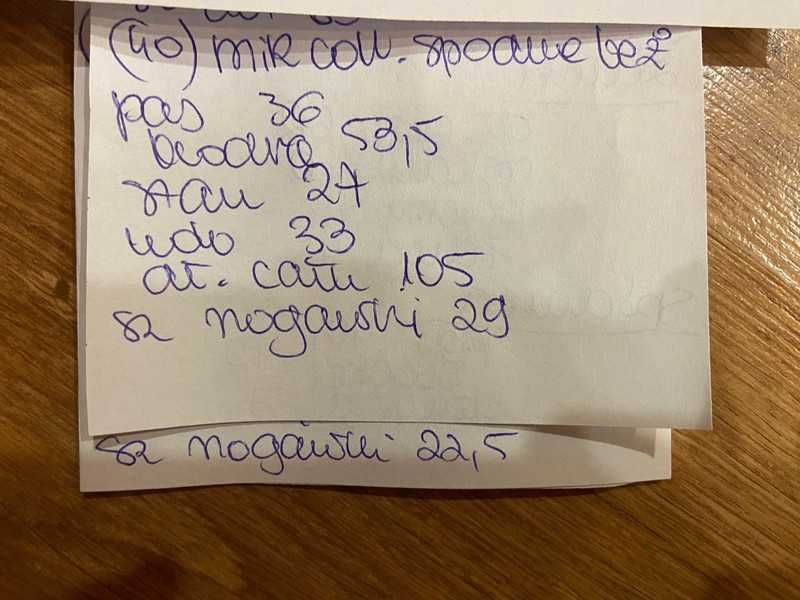 (40) mik coll. spodnie beż
pas 36
biodra 53,5
stan 27
udo 33
dł. całk 105
sz nogawki 29
sz nogawki 22,5